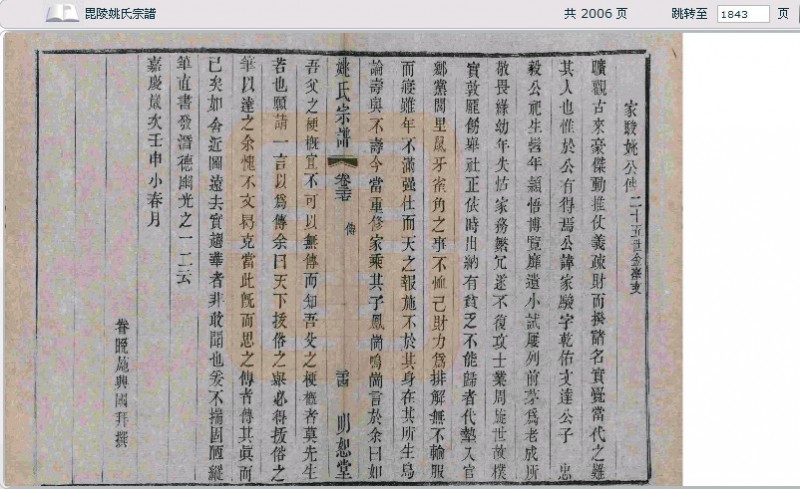 毘陵姚氏宗譜
共 2006 页
跳转至 1843 页
家駿姚公傳 二十五世金華支
曠觀古來豪傑動推仗義疎財而揆諸名實覺當代之難
其人也惟於公有得焉公諱家駿字乾佑文達公子 忠
毅公祀生髫年穎悟博覽靡遺小試屢列前茅爲老成所
敬畏緣幼年失怙家務繁冗遂不復攻士業周旋世故樸
實敦龐僑舉社正依時出納有貧乏不能歸者代墊入官
鄉黨閭里鼠牙雀角之事不恤己財力爲排解無不輸服
而寢雖年不滿强仕而天之報施不於其身在其所生烏
論壽與不壽今當重修家乘其子鳳崗鳴崗言於余曰如
姚氏宗譜 卷 傳 明恕堂
吾父之梗概宜不可以無傳而知吾父之梗概者莫先生
若也願請一言以爲傳余曰天下拔俗之舉必得拔俗之
筆以達之余愧不文曷克當此既而思之傳者傳其眞而
已矣如舍近圖遠去實趨華者非敢聞也爰不揣固陋縱
筆直書發潛德幽光之一二云
嘉慶歲次壬申小春月
眷晚施興國拜撰